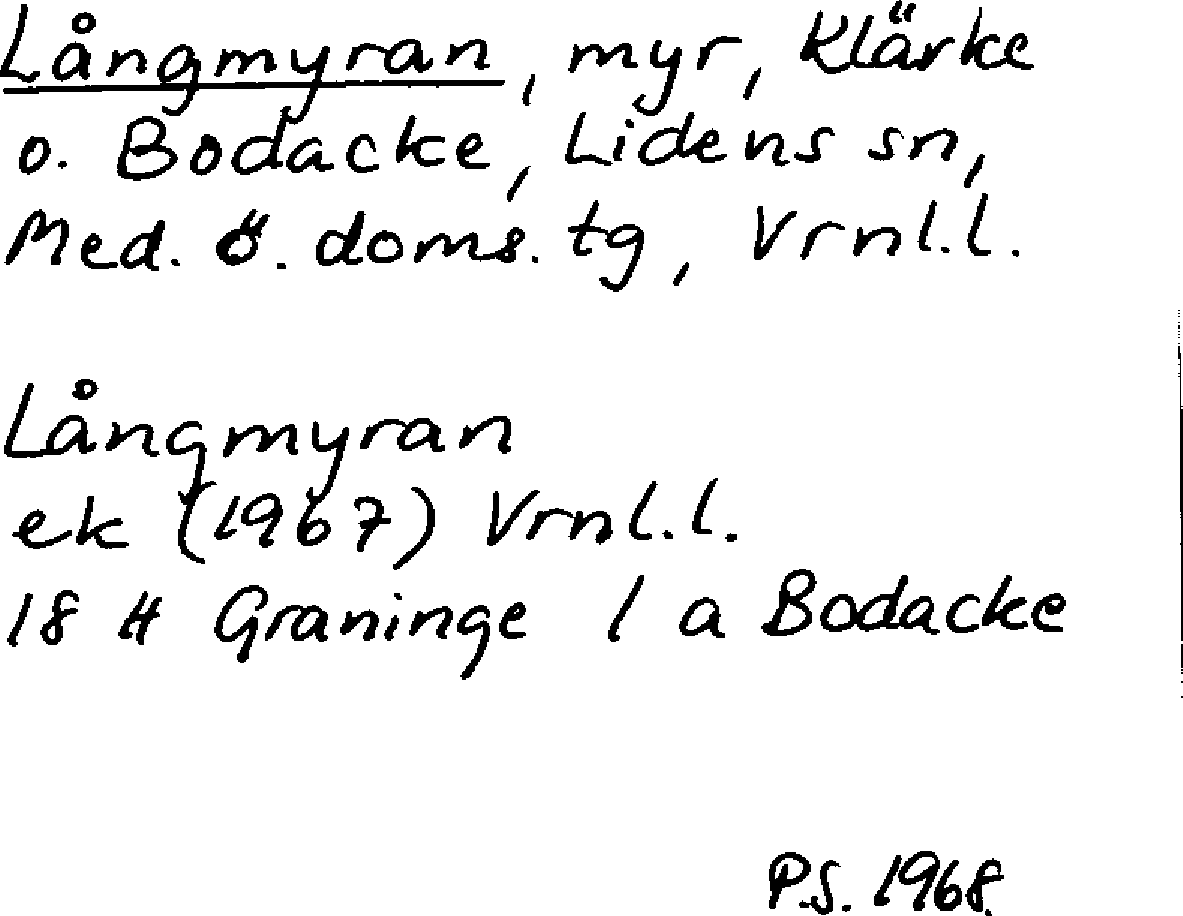 Långmyran, myr, Klärke
o. Bodacke, Lidens sn,
Med. ö. doms. tg, Vrnl.l.
Långmyran
ek (1967) Vrnl.l.
18 H Graninge 1 a Bodacke
P.S. 1968.